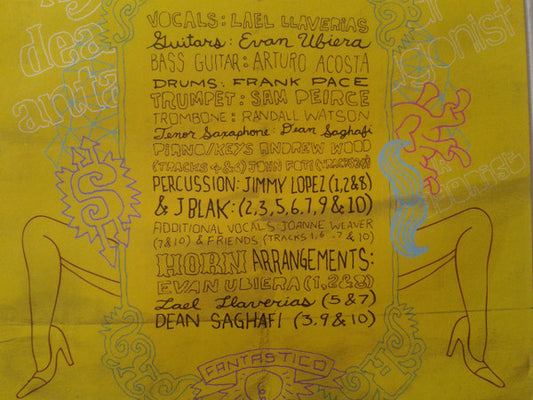 VOCALS: LAEL LLAVERIAS
Guitars: Evan Ubiera
BASS GUITAR: ARTURO ACOSTA
DRUMS: FRANK PACE
TRUMPET: SAM PEIRCE
TROMBONE: RANDALL WATSON
Tenor Saxophone: Dean Saghafi
PIANO/KEYS ANDREW WOOD
(TRACKS 4 & 6) JOHN FOTI
PERCUSSION: JIMMY LOPEZ (1,2&8)
& J BLAK: (2,3,5,6,7,9 & 10)
ADDITIONAL VOCALS: JOANNE WEAVER
(7&10) & FRIENDS (TRACKS 1, 6, 7 & 10)
HORN ARRANGEMENTS:
EVAN UBIERA (1,2&8)
Lael Llaverias (5 & 7)
DEAN SAGHAFI (3,9 & 10)
FANTASTICO
dea
anta
gonist